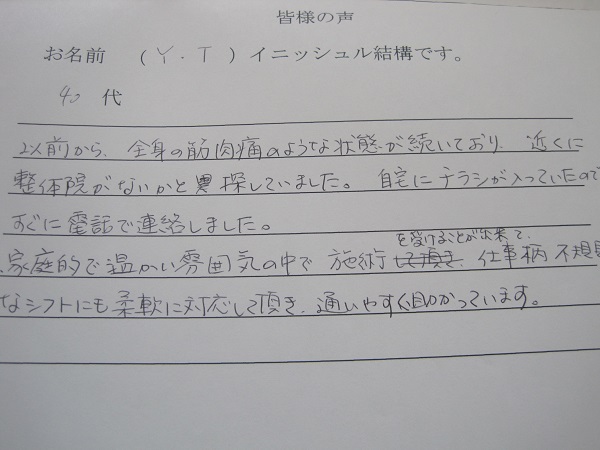 皆様の声
お名前 (Y.T)イニッシュル結構です。
40 代
以前から、全身の筋肉痛のような状態が続いており、近くに
整体院がないかと探していました。自宅にチラシが入っていたので
すぐに電話で連絡しました。
を受けることが出来て、
家庭的で温かい雰囲気の中で施術して頂き、仕事柄不規
なシフトにも柔軟に対応して頂き、通いやすく助かっています。